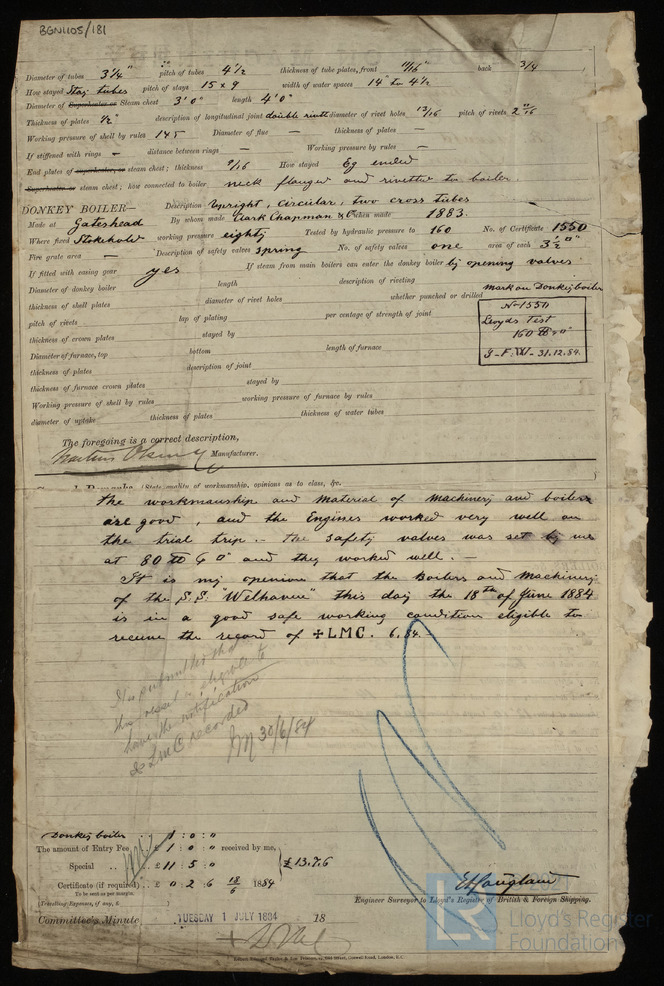 BGN1105/181
Diameter of tubes 3¼" pitch of tubes 4½ thickness of tube plates, front 11/16" back 3/4
How stayed Stay tubes pitch of stays 15 x 9 width of water spaces 14" to 4½
Diameter of Superheater or Steam chest 3'0" length 4'0"
Thickness of plates ½" description of longitudinal joint double rivtt diameter of rivet holes 13/16 pitch of rivets 2 11/16
Working pressure of shell by rules 145 Diameter of flue — thickness of plates —
If stiffened with rings — distance between rings — Working pressure by rules —
End plates of superheater, or steam chest; thickness 9/16 How stayed Eg ended
Superheater or steam chest; how connected to boiler neck flanged and rivetted to boiler
DONKEY BOILER— Description Upright, Circular, two cross tubes
Made at Gateshead By whom made Clark Chapman & Co when made 1883.
Where fixed Stokehold working pressure eighty Tested by hydraulic pressure to 160 No. of Certificate 1550
Fire grate area — Description of safety valves Spring No. of safety valves one area of each 3½ □"
If fitted with easing gear yes If steam from main boilers can enter the donkey boiler by opening valves
Diameter of donkey boiler length description of riveting Mark on Donkey boiler
thickness of shell plates diameter of rivet holes whether punched or drilled No 1550
pitch of rivets lap of plating per centage of strength of joint Lloyds Test
thickness of crown plates stayed by 160
Diameter of furnace, top bottom length of furnace J-F.W- 31.12.84.
thickness of plates description of joint
thickness of furnace crown plates stayed by
Working pressure of shell by rules working pressure of furnace by rules
diameter of uptake thickness of plates thickness of water tubes
The foregoing is a correct description,
Martens Olsen Manufacturer.
General Remarks (State quality of workmanship, opinions as to class, &c.
the workmanship and Material of Machinery and boilers
are good, and the Engines worked very well on
the trial trip.. the safety valves was set by me
at 80 lb to □" and they worked well. —
It is my openion that the Boilers and Machinery
of the S.S. "Welhaven" this day the 18th of June 1884
is in a good safe working condition eligible to
receive the record of ✠LMC. 6.84.—
It is submitted that
this vessel is eligible to
have the notification
✠ LMC recorded
30/6/84
Donkey boiler .. 1 : 0 : "
The amount of Entry Fee .. £ 1 : 0 : " received by me,
Special .. £ 11 : 5 : " £13.7.6
Certificate (if required) .. £ 0 2 6 18/6 1884
To be sent as per margin.
(Travelling Expenses, if any, £ )
Engineer Surveyor to Lloyd's Register of British & Foreign Shipping.
Committee's Minute TUESDAY 1 JULY 1884 18
LR
Lloyd's Register
Foundation